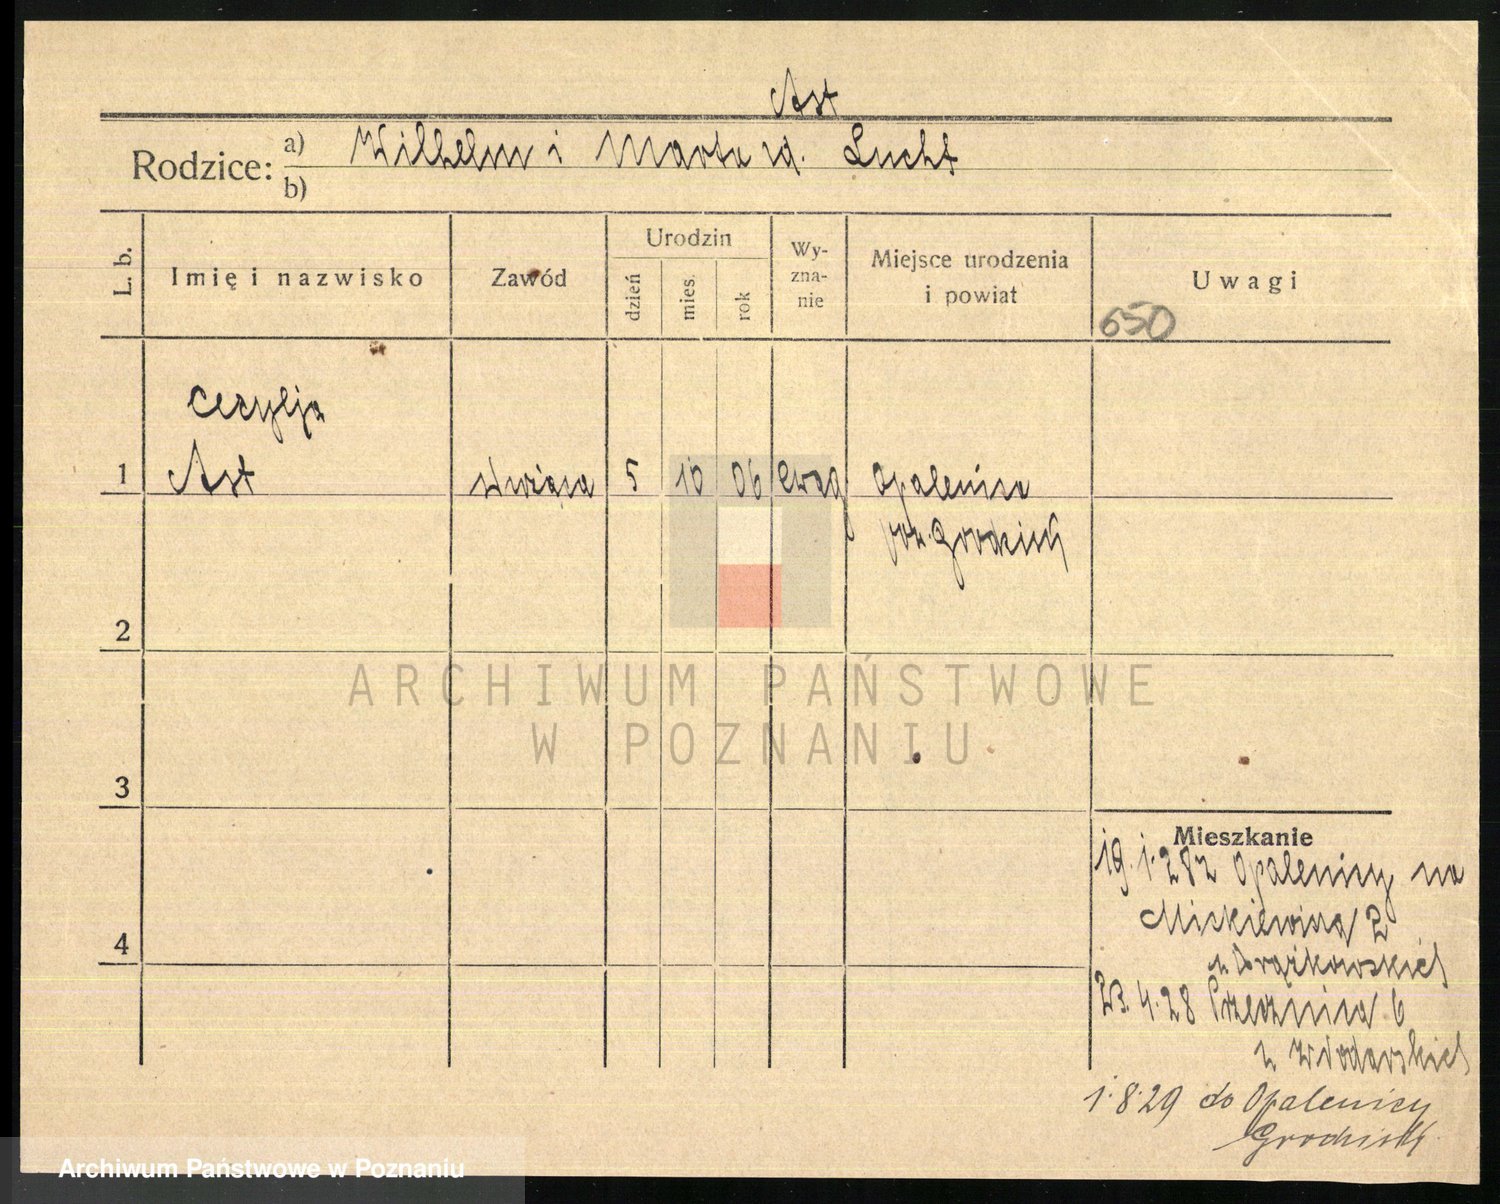 Ast
Rodzice: a) Wilhelm i Marta zd. Lucht
b)
L. b.
Imię i nazwisko
Zawód
Urodzin
dzień
mies.
rok
Wy-
zna-
nie
Miejsce urodzenia
i powiat
Uwagi
650
Cecylja
1 Ast służąca 5 10 06 ewag Opalenica
pow. Grodzisk
2
3
4
ARCHIWUM PAŃSTWOWE
W POZNANIU
Mieszkanie
19.1.28 z Opalenicy na
Mickiewicza 2
23.4.28 6
1.8.29 do Opalenicy
Grodzisk
Archiwum Państwowe w Poznaniu